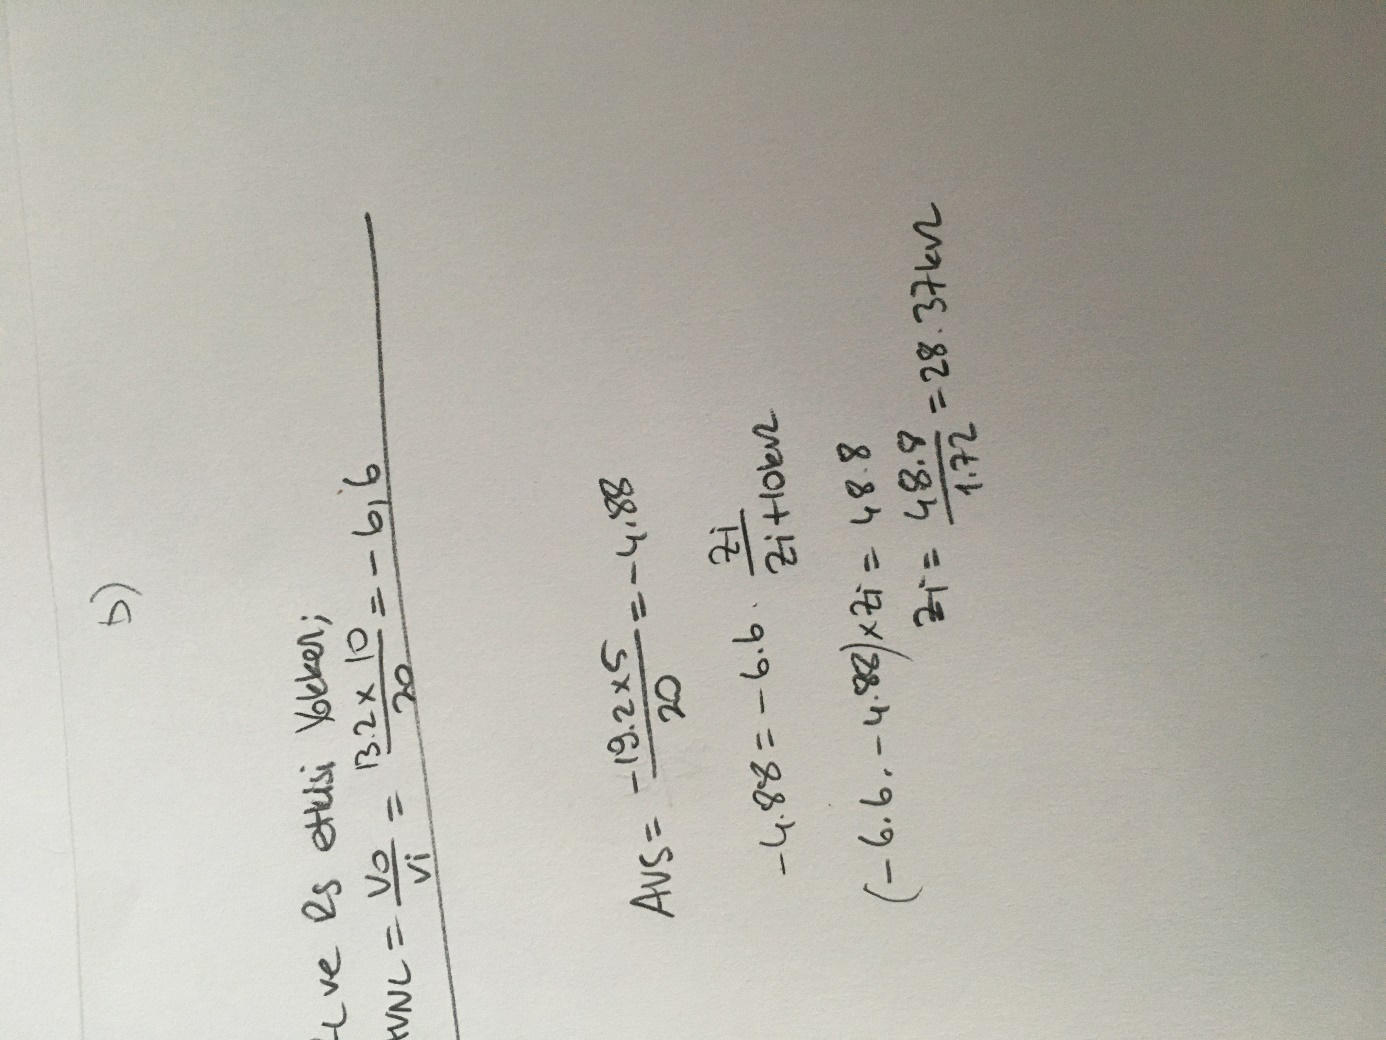 b)
L ve Rs etkisi Yokken;
AVNL = Vo/Vi = 13.2 x 10/20 = -6,6
AVS = -19.2x5/20 = -4,88
-4.88 = -6.6 . Zi/Zi+10kΩ
(-6.6. -4.88)xZi = 48.8
Zi = 48.8/1.72 = 28.37kΩ